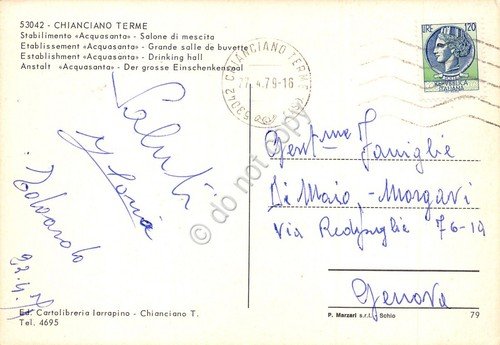 53042 - CHIANCIANO TERME
Stabilimento «Acquasanta» - Salone di mescita
Etablissement «Acquasanta» - Grande salle de buvette
Establishment «Acquasanta» - Drinking hall
Anstalt «Acquasanta» - Der grosse Einschenkensaal
53042 CHIANCIANO TERME (SI)
.4.79-16
LIRE 120
REPUBBLICA
ITALIANA
Saluti
Edoardo
Gent.me Famiglie
Di Maio - Morgavi
Via Redipuglie 76-19
Genova
do not copy
Ed. Cartolibreria Iarrapino - Chianciano T.
Tel. 4695
P. Marzari s.r.l. Schio
79